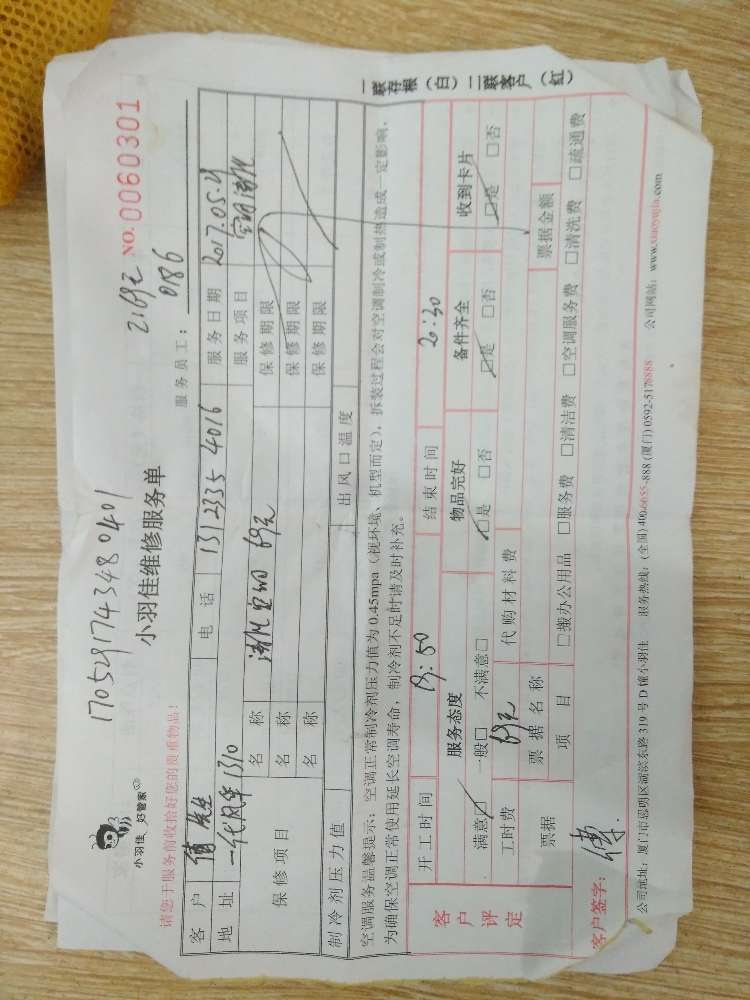 1705291743480401
小羽佳 好管家
小羽佳维修服务单
NO.0060301
请您于服务前收拾好您的贵重物品!
服务员工: 0186
客户 傅先生 电话 13123354016 服务日期 2017.05.29
地址 一代风华1310 服务项目 空调清洗
保修项目 名称 清洗空调 69元 保修期限
名称 保修期限
名称 保修期限
制冷剂压力值 出风口温度
空调服务温馨提示:空调正常制冷剂压力值为0.45mpa(视环境、机型而定),拆装过程会对空调制冷或制热造成一定影响,
为确保空调正常使用延长空调寿命,制冷剂不足时请及时补充。
客户评定 开工时间 19:50 结束时间 20:30
服务态度 物品完好 备件齐全 收到卡片
满意☑ 一般□ 不满意□ ☑是 □否 ☑是 □否 ☑是 □否
工时费 69元 代购材料费
票据 票据名称 票据金额
项目 □搬办公用品 □服务费 □清洁费 □空调服务费 □清洗费 □疏通费
客户签字: 傅
公司地址:厦门市思明区湖滨东路319号D幢小羽佳 服务热线:(全国)400-6655-888 (厦门)0592-5178888 公司网站:www.xiaoyujia.com
一联存根(白)二联客户(红)